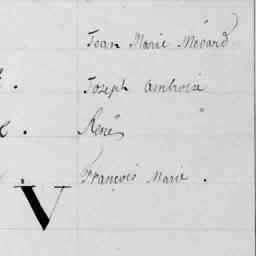 Jean Marie Médard
Joseph Ambroise
René "
François Marie .
V